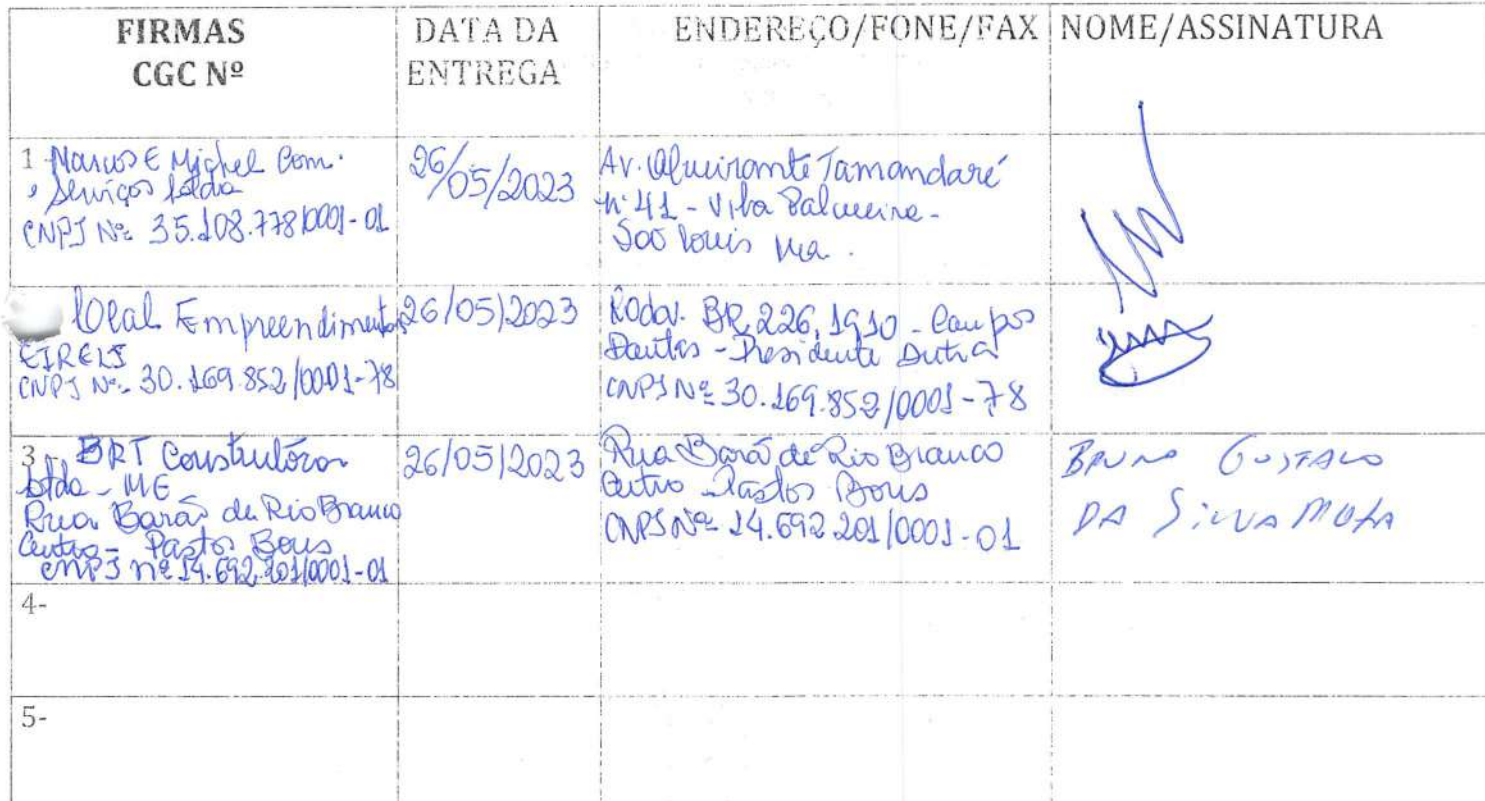 FIRMAS
CGC Nº
DATA DA
ENTREGA
ENDEREÇO/FONE/FAX
NOME/ASSINATURA
1- Marcos E Michel Com.
e Serviços Ltda
CNPJ Nº 35.108.778/0001-01
26/05/2023
Av. Almirante Tamandaré
Nº 41 - Vila Palmeira -
São Louis Ma.
Local Empreendimentos
EIRELI
CNPJ Nº 30.169.852/0001-78
26/05/2023
Rodov. BR 226, 1910 - Campos
Dantas - Presidente Dutra
CNPJ Nº 30.169.852/0001-78
3- BRT Construtora
Ltda - ME
Rua Barão de Rio Branco
Centro - Pastos Bons
CNPJ nº 14.692.201/0001-01
26/05/2023
Rua Barão de Rio Branco
Centro Pastos Bons
CNPJ Nº 14.692.201/0001-01
BRUNO GUSTAVO
DA SILVA MOTA
4-
5-